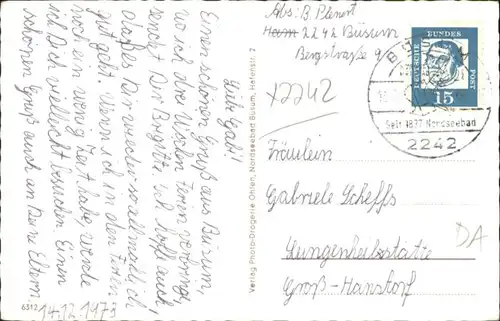 Abs. B. Plenert
Hamm 2242 Büsum
Bergstraße 9
x2242
DEUTSCHE BUNDES POST
15
Seit 1837 Nordseebad
2242
Liebe Gabi!
Einen schönen Gruß aus Büsum,
wo ich drei Wochen Ferien verbringe,
sendet Dir Brigitte. Ich hoffe auch,
daß es Dir wieder so allmählich
gut geht. Wenn ich in den Ferien
noch ein wenig Zeit habe, werde
ich Dich vielleicht besuchen. Einen
schönen Gruß auch an Deine Eltern.
6312
14.12.1973
Verlag Photo-Drogerie Ohlen, Nordseebad Büsum, Hafenstr. 2
Fräulein
Gabriele Scheffs
Lungenheilstätte
Groß-Hansdorf
DA